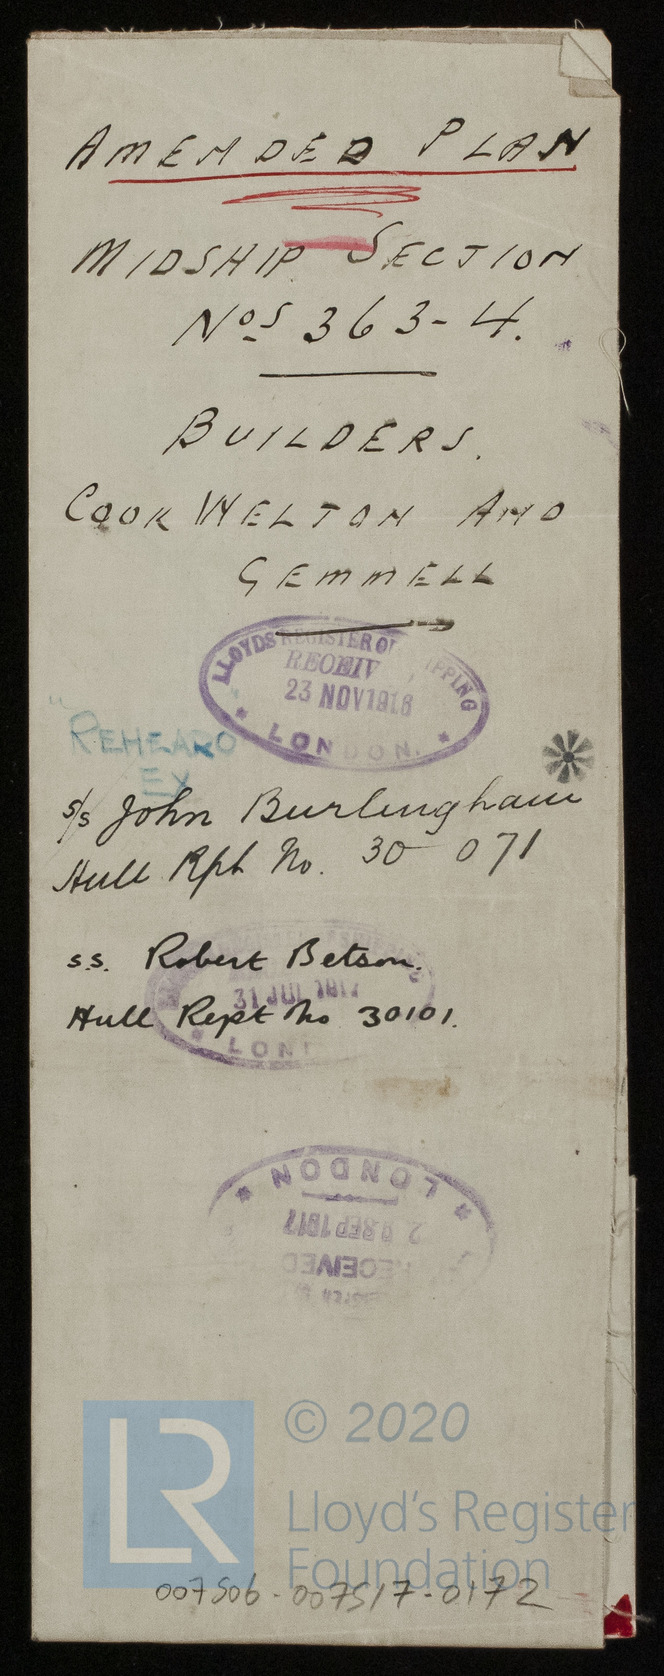 AMENDED PLAN
MIDSHIP SECTION
Nos 363-4.
BUILDERS.
COOK WELTON AND
GEMMELL
LLOYDS REGISTER OF SHIPPING
RECEIV
23 NOV 1916
* LONDON. *
"REHEARO
EX
s/s John Burlingham
Hull Rpt No. 30 071
s.s. Robert Betson.
31 JUL 1917
Hull Rept No 30101.
* LON
* LONDON *
SEP 1917
RECEIVED
© 2020
LR
Lloyd's Register
Foundation
007506-007517-0172